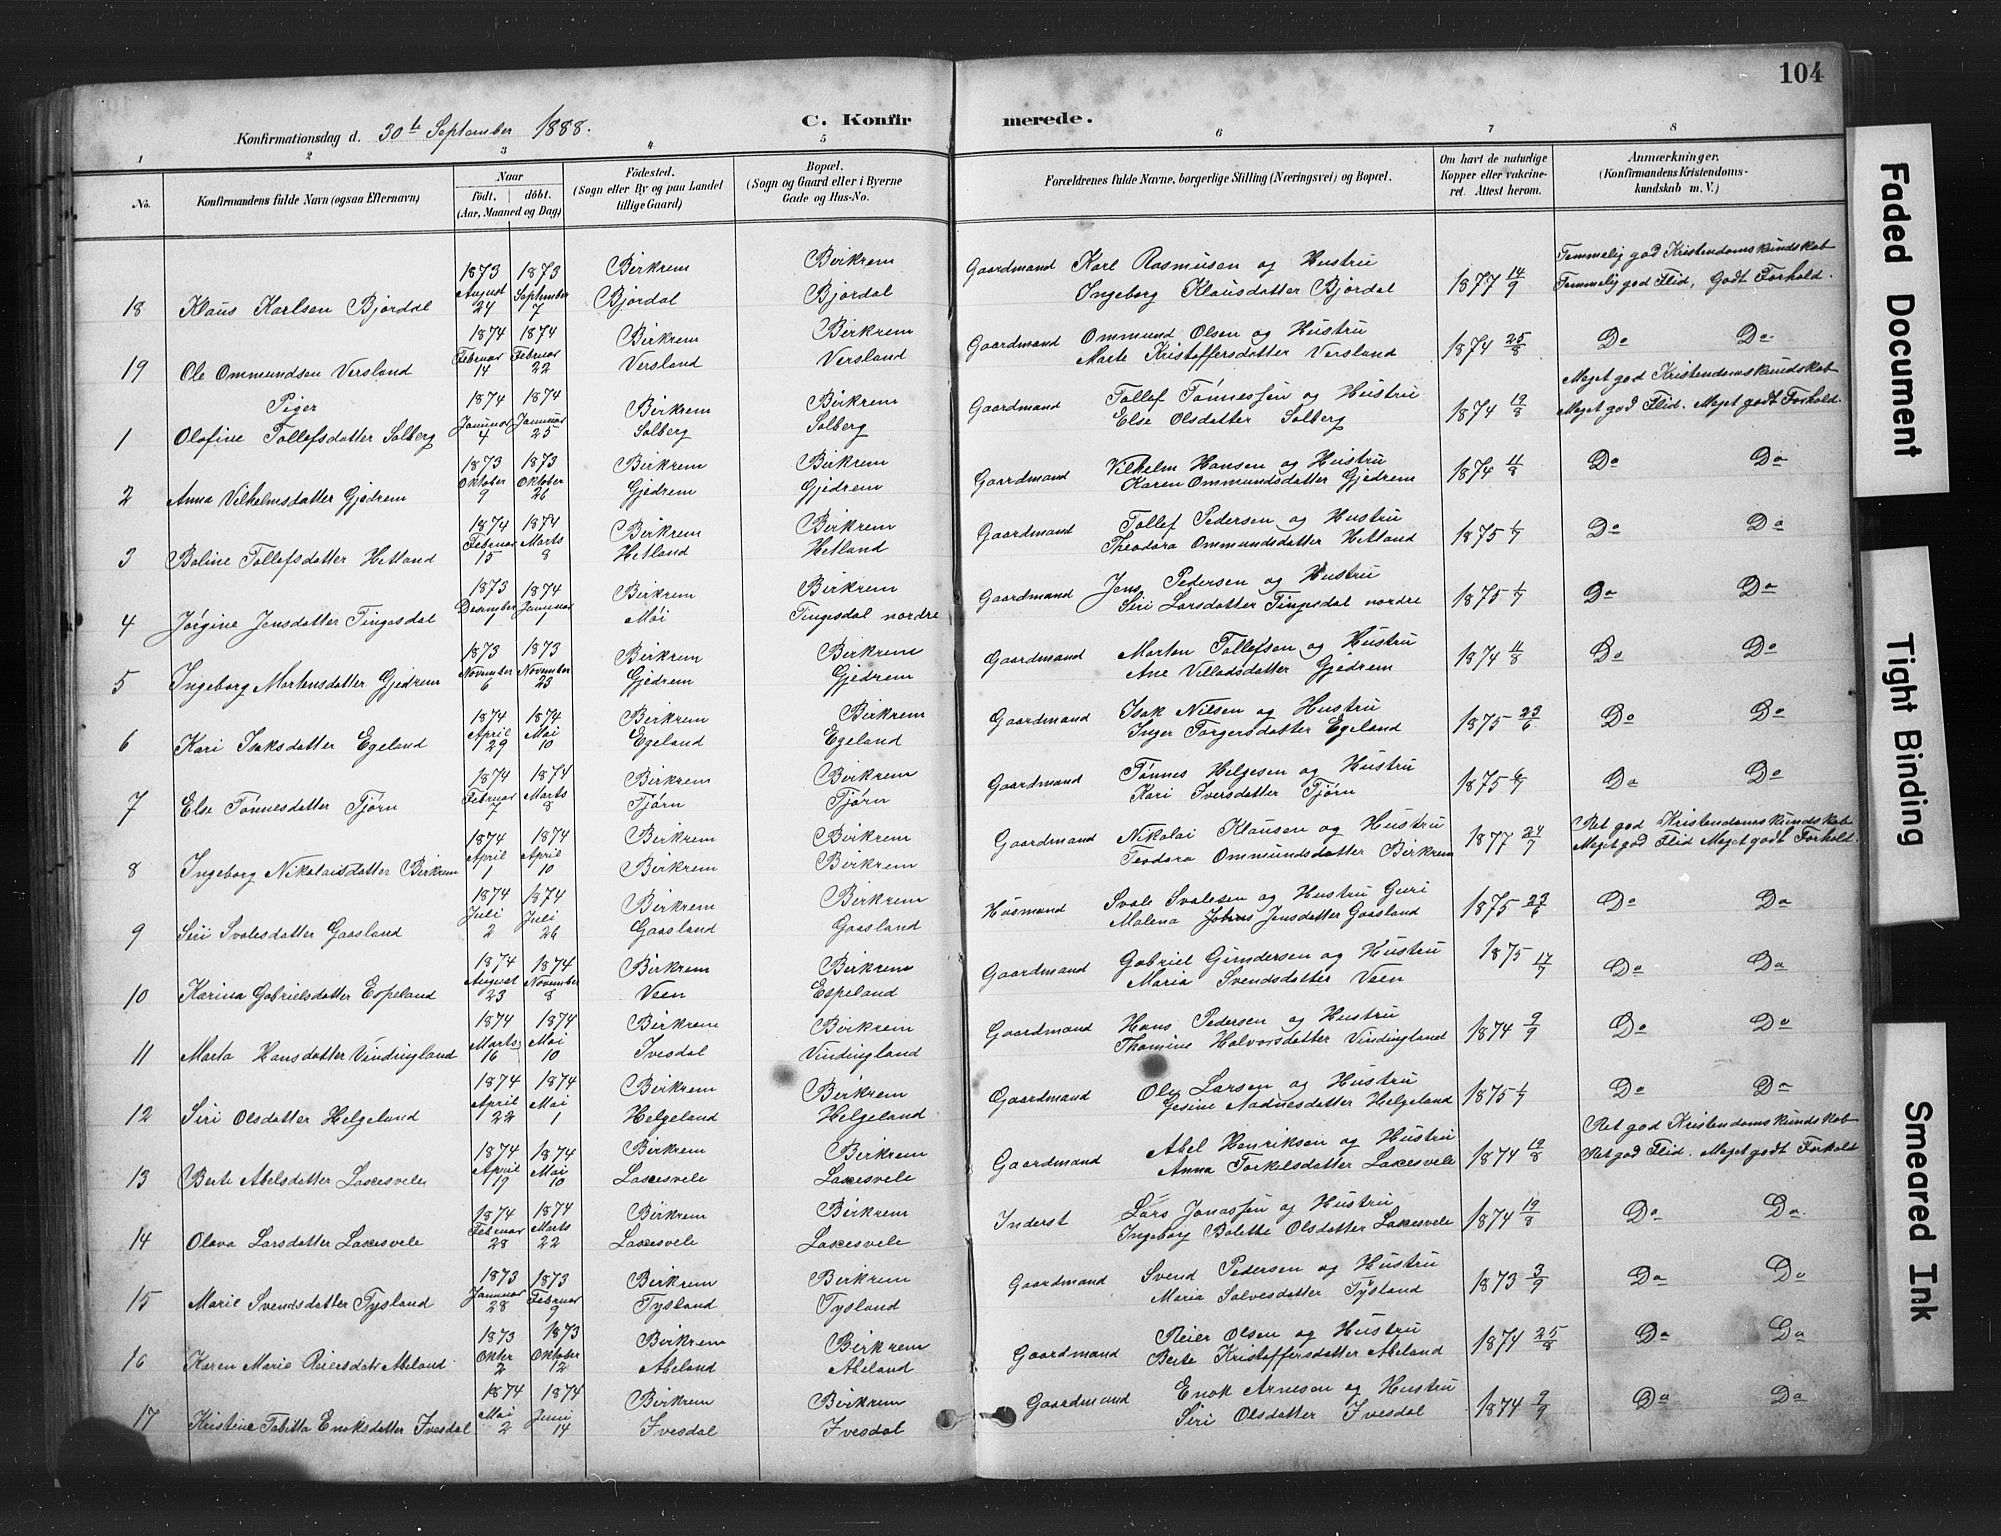 104
Konfirmationsdag d. 30te September 1888.
C. Konfirmerede.
1 2 3 4 5 6 7 8
No.
Konfirmandens fulde Navn (ogsaa Efternavn)
Naar
født, døbt.
(Aar, Maaned og Dag)
Fødested.
(Sogn eller By og paa Landet
tillige Gaard)
Bopæl.
(Sogn og Gaard eller i Byerne
Gade og Hus-No.
Forældrenes fulde Navne, borgerlige Stilling (Næringsvei) og Bopæl.
Om havt de naturlige
Kopper eller vakcine-
ret. Attest herom.
Anmærkninger.
(Konfirmandens Kristendoms-
kundskab m. V.)
18 Klaus Karlsen Bjordal 1873 August 24 1873 September 7 Birkrem Bjordal Birkrem Bjordal Gaardmand Karl Rasmusen og Hustru
Ingeborg Klausdatter Bjordal 1877 14/9 Temmelig god Kristendomskundskab
Temmelig god Flid, Godt Forhold.
19 Ole Ommundsen Versland 1874 Februar 14 1874 Februar 22 Birkrem Versland Birkrem Versland Gaardmand Ommund Olsen og Hustru
Marte Kristoffersdatter Versland 1874 25/8 Do Do
Piger
1 Olofine Tollefsdatter Solberg 1874 Januar 4 1874 Januar 25 Birkrem Solberg Birkrem Solberg Gaardmand Tollef Tønnessen og Hustru
Else Olsdatter Solberg 1874 19/8 Meget god Kristendomskundskab
Meget god Flid. Meget godt Forhold.
2 Anna Vilhelmsdatter Gjedrem 1873 Oktober 9 1873 Oktober 26 Birkrem Gjedrem Birkrem Gjedrem Gaardmand Vilhelm Hansen og Hustru
Karen Ommundsdatter Gjedrem 1874 11/8 Do Do
3 Boline Tollefsdatter Hetland 1874 Februar 15 1874 Marts 8 Birkrem Hetland Birkrem Hetland Gaardmand Tollef Pedersen og Hustru
Theodora Ommundsdatter Hetland 1875 1/7 Do Do
4 Jørgine Jensdatter Tingesdal 1873 Desember 1 1874 Januar 1 Birkrem Møi Birkrem Tingesdal nordre Gaardmand Jens Pedersen og Hustru
Siri Larsdatter Tingesdal nordre 1875 1/7 Do Do
5 Ingeborg Martensdatter Gjedrem 1873 November 6 1873 November 23 Birkrem Gjedrem Birkrem Gjedrem Gaardmand Morten Tollefsen og Hustru
Ane Villadsdatter Gjedrem 1874 11/8 Do Do
6 Kari Isaksdatter Egeland 1874 April 29 1874 Mai 10 Birkrem Egeland Birkrem Egeland Gaardmand Isak Nilsen og Hustru
Inger Torgersdatter Egeland 1875 23/6 Do Do
7 Else Tønnesdatter Tjørn 1874 Februar 7 1874 Marts 8 Birkrem Tjørn Birkrem Tjørn Gaardmand Tønnes Helgesen og Hustru
Kari Iversdatter Tjørn 1875 6/7 Do Do
8 Ingeborg Nikolaisdatter Birkrem 1874 April 1 1874 April 10 Birkrem Birkrem Birkrem Birkrem Gaardmand Nikolai Klausen og Hustru
Teodora Ommundsdatter Birkrem 1877 24/7 Ret god Kristendomskundskab
Meget god Flid Meget godt Forhold.
9 Siri Svalesdatter Gaasland 1874 Juli 2 1874 Juli 26 Birkrem Gaasland Birkrem Gaasland Husmand Svale Svalesen og Hustru Guri
Malena Jensdatter Gaasland 1875 23/6 Do Do
10 Karina Gabrielsdatter Espeland 1874 August 23 1874 November 8 Birkrem Veen Birkrem Espeland Gaardmand Gabriel Gundersen og Hustru
Maria Svendsdatter Veen 1875 17/7 Do Do
11 Marta Hansdatter Vindingland 1874 Marts 16 1874 Mai 10 Birkrem Ivesdal Birkrem Vindingland Gaardmand Hans Pedersen og Hustru
Thomine Halvorsdatter Vindingland 1874 9/9 Do Do
12 Siri Olsdatter Helgeland 1874 April 22 1874 Mai 1 Birkrem Helgeland Birkrem Helgeland Gaardmand Ole Larsen og Hustru
Gesine Aadnesdatter Helgeland 1875 1/7 Do Do
13 Berte Abelsdatter Laxesvele 1874 April 19 1874 Mai 10 Birkrem Laxesvele Birkrem Laxesvele Gaardmand Abel Henriksen og Hustru
Anna Torkelsdatter Laxesvele 1874 19/8 Ret god Kristendomskundskab
Ret god Flid. Meget godt Forhold
14 Olava Larsdatter Laxesvele 1874 Februar 28 1874 Marts 22 Birkrem Laxesvele Birkrem Laxesvele Inderst Lars Jonassen og Hustru
Ingeborg Bolethe Olsdatter Laxesvele 1874 19/8 Do Do.
15 Marie Svendsdatter Tysland 1873 Januar 28 1873 Februar 9 Birkrem Tysland Birkrem Tysland Gaardmand Svend Pedersen og Hustru
Maria Salvesdatter Tysland 1873 3/9 Do Do
16 Karen Marie Reiersdatr Abeland. 1873 Oktbr 2 1873 Oktober 12 Birkrem Abeland Birkrem Abeland Gaardmand Reier Olsen og Hustru
Berte Kristoffersdatter Abeland 1874 25/8 Do Do
17 Kristine Tabitta Enoksdatter Ivesdal 1874 Mai 2 1874 Juni 14 Birkrem Ivesdal Birkrem Ivesdal Gaardmand Enok Arnesen og Hustru
Siri Olsdatter Ivesdal 1874 9/9 Do Do
Faded Document
Tight Binding
Smeared Ink